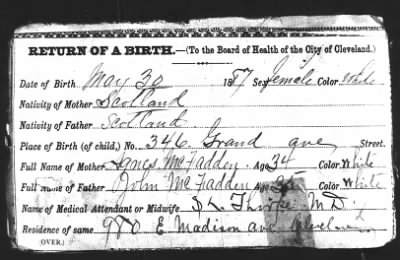 RETURN OF A BIRTH.—(To the Board of Health of the City of Cleveland.)
Date of Birth May 30 1887 Sex Female Color White
Nativity of Mother Scotland
Nativity of Father Scotland
Place of Birth (of child,) No. 346 Grand ave Street.
Full Name of Mother Agnes McFadden Age 34 Color White
Full Name of Father John McFadden Age 35 Color White
Name of Medical Attendant or Midwife Thorpe M.D.
Residence of same 980 E. Madison ave Cleveland
(OVER.)